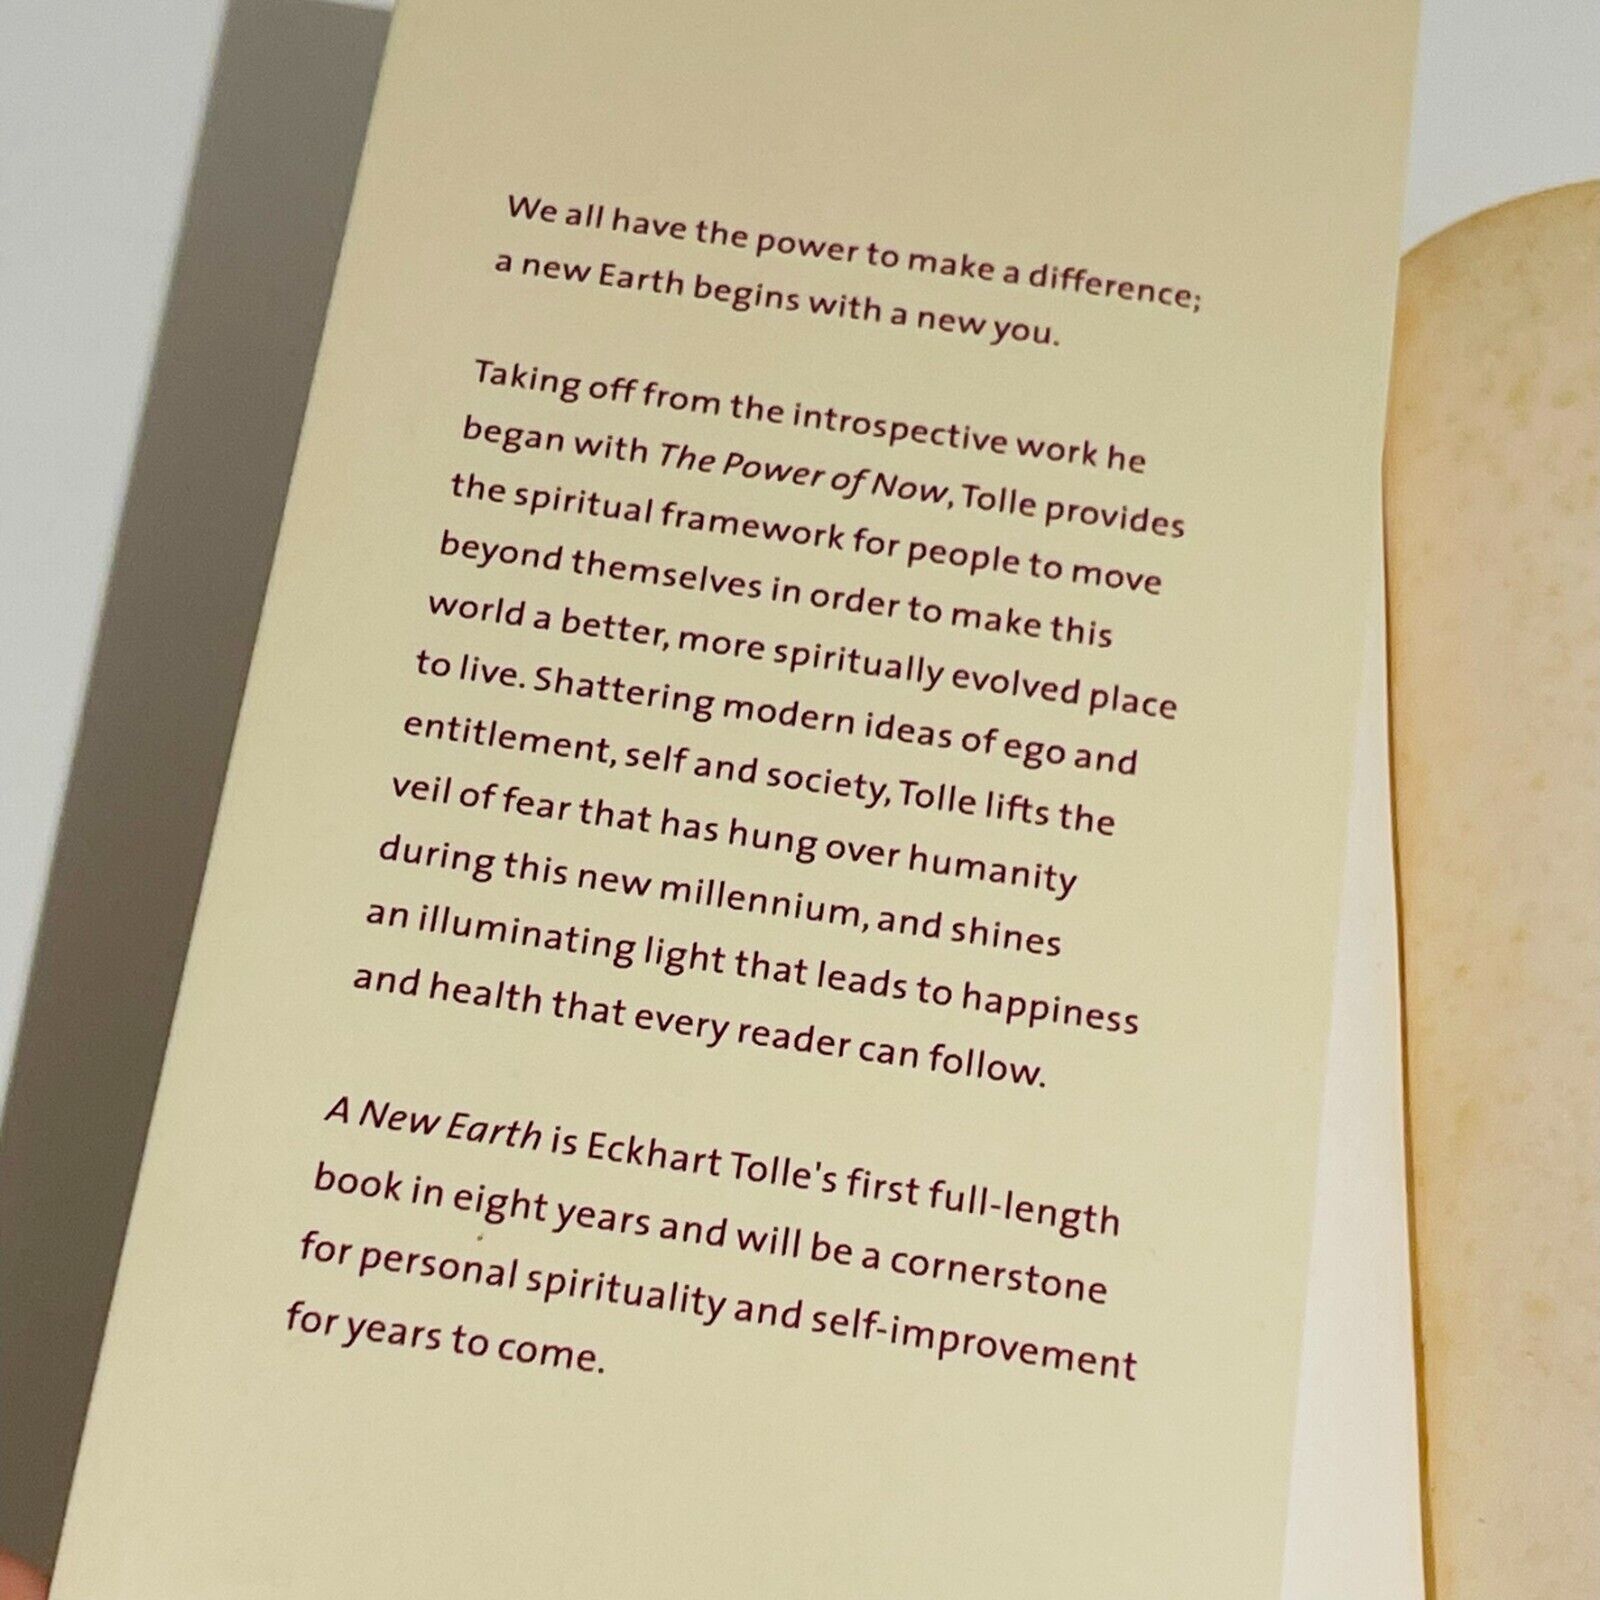 We all have the power to make a difference;
a new Earth begins with a new you.
Taking off from the introspective work he
began with The Power of Now, Tolle provides
the spiritual framework for people to move
beyond themselves in order to make this
world a better, more spiritually evolved place
to live. Shattering modern ideas of ego and
entitlement, self and society, Tolle lifts the
veil of fear that has hung over humanity
during this new millennium, and shines
an illuminating light that leads to happiness
and health that every reader can follow.
A New Earth is Eckhart Tolle's first full-length
book in eight years and will be a cornerstone
for personal spirituality and self-improvement
for years to come.